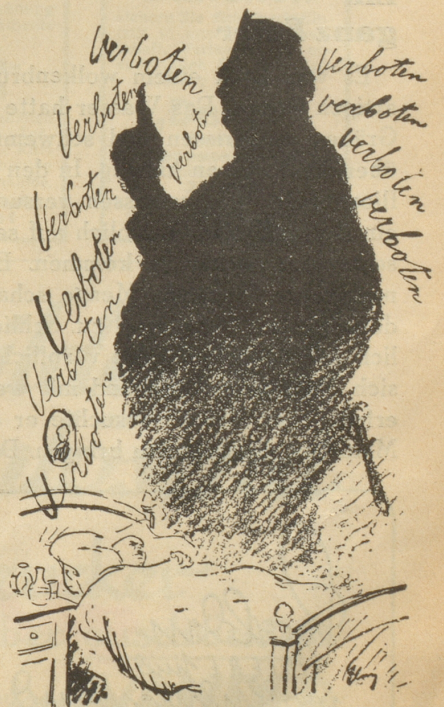 Verboten
Verboten
verboten
Verboten
Verboten
Verboten
Verboten
Verboten
verboten
verboten
verboten